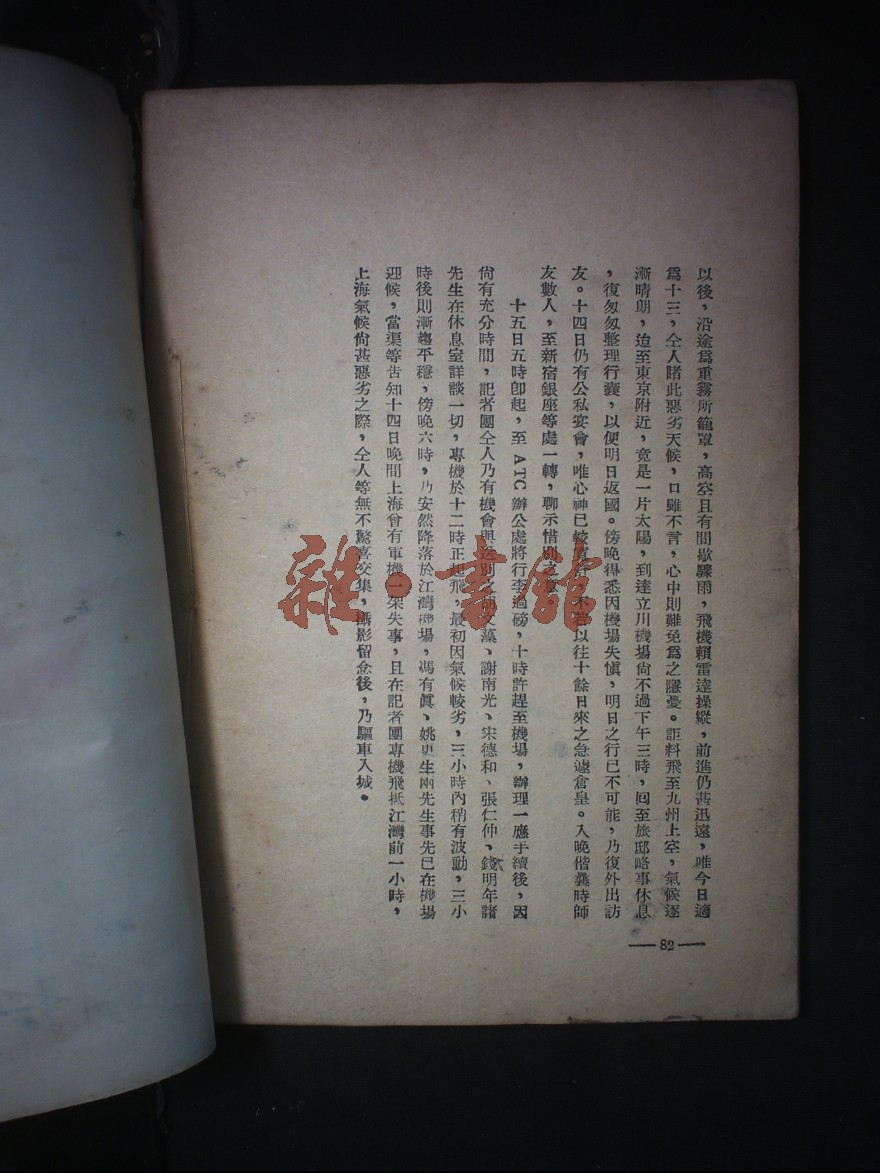 以後，沿途爲重霧所籠罩，高空且有間歇驟雨，飛機賴雷達操縱，前進仍甚迅遠，唯今日適
爲十三，仝人賭此惡劣天候，口雖不言，心中則難免爲之隱憂。詎料飛至九州上空，氣候逐
漸晴朗，迨至東京附近，竟是一片太陽，到達立川機場尙不過下午三時，囘至旅邸略事休息
，復匆匆整理行囊，以便明日返國。傍晚得悉因機場失愼，明日之行已不可能，乃復外出訪
友。十四日仍有公私宴會，唯心神已較寬舒，不若以往十餘日來之急遽倉皇。入晚偕龔時師
友數人，至新宿銀座等處一轉，聊示惜別之意
十五日五時卽起，至ATC辦公處將行李過磅，十時許趕至機場，辦理一應手續後，因
尙有充分時間，記者團仝人乃有機會與送別之文藻、謝南光、宋德和、張仁仲、錢明年諸
先生在休息室詳談一切，專機於十二時正起飛，最初因氣候較劣，三小時內稍有波動，三小
時後則漸趨平穩，傍晚六時，乃安然降落於江灣機場，馮有眞、姚吏生兩先生事先已在機場
迎候，當渠等告知十四日晚間上海曾有軍機一架失事，且在記者團專機飛抵江灣前一小時，
上海氣候尙甚惡劣之際，仝人等無不驚喜交集，攝影留念後，乃驅車入城。
—82—
雜·書館